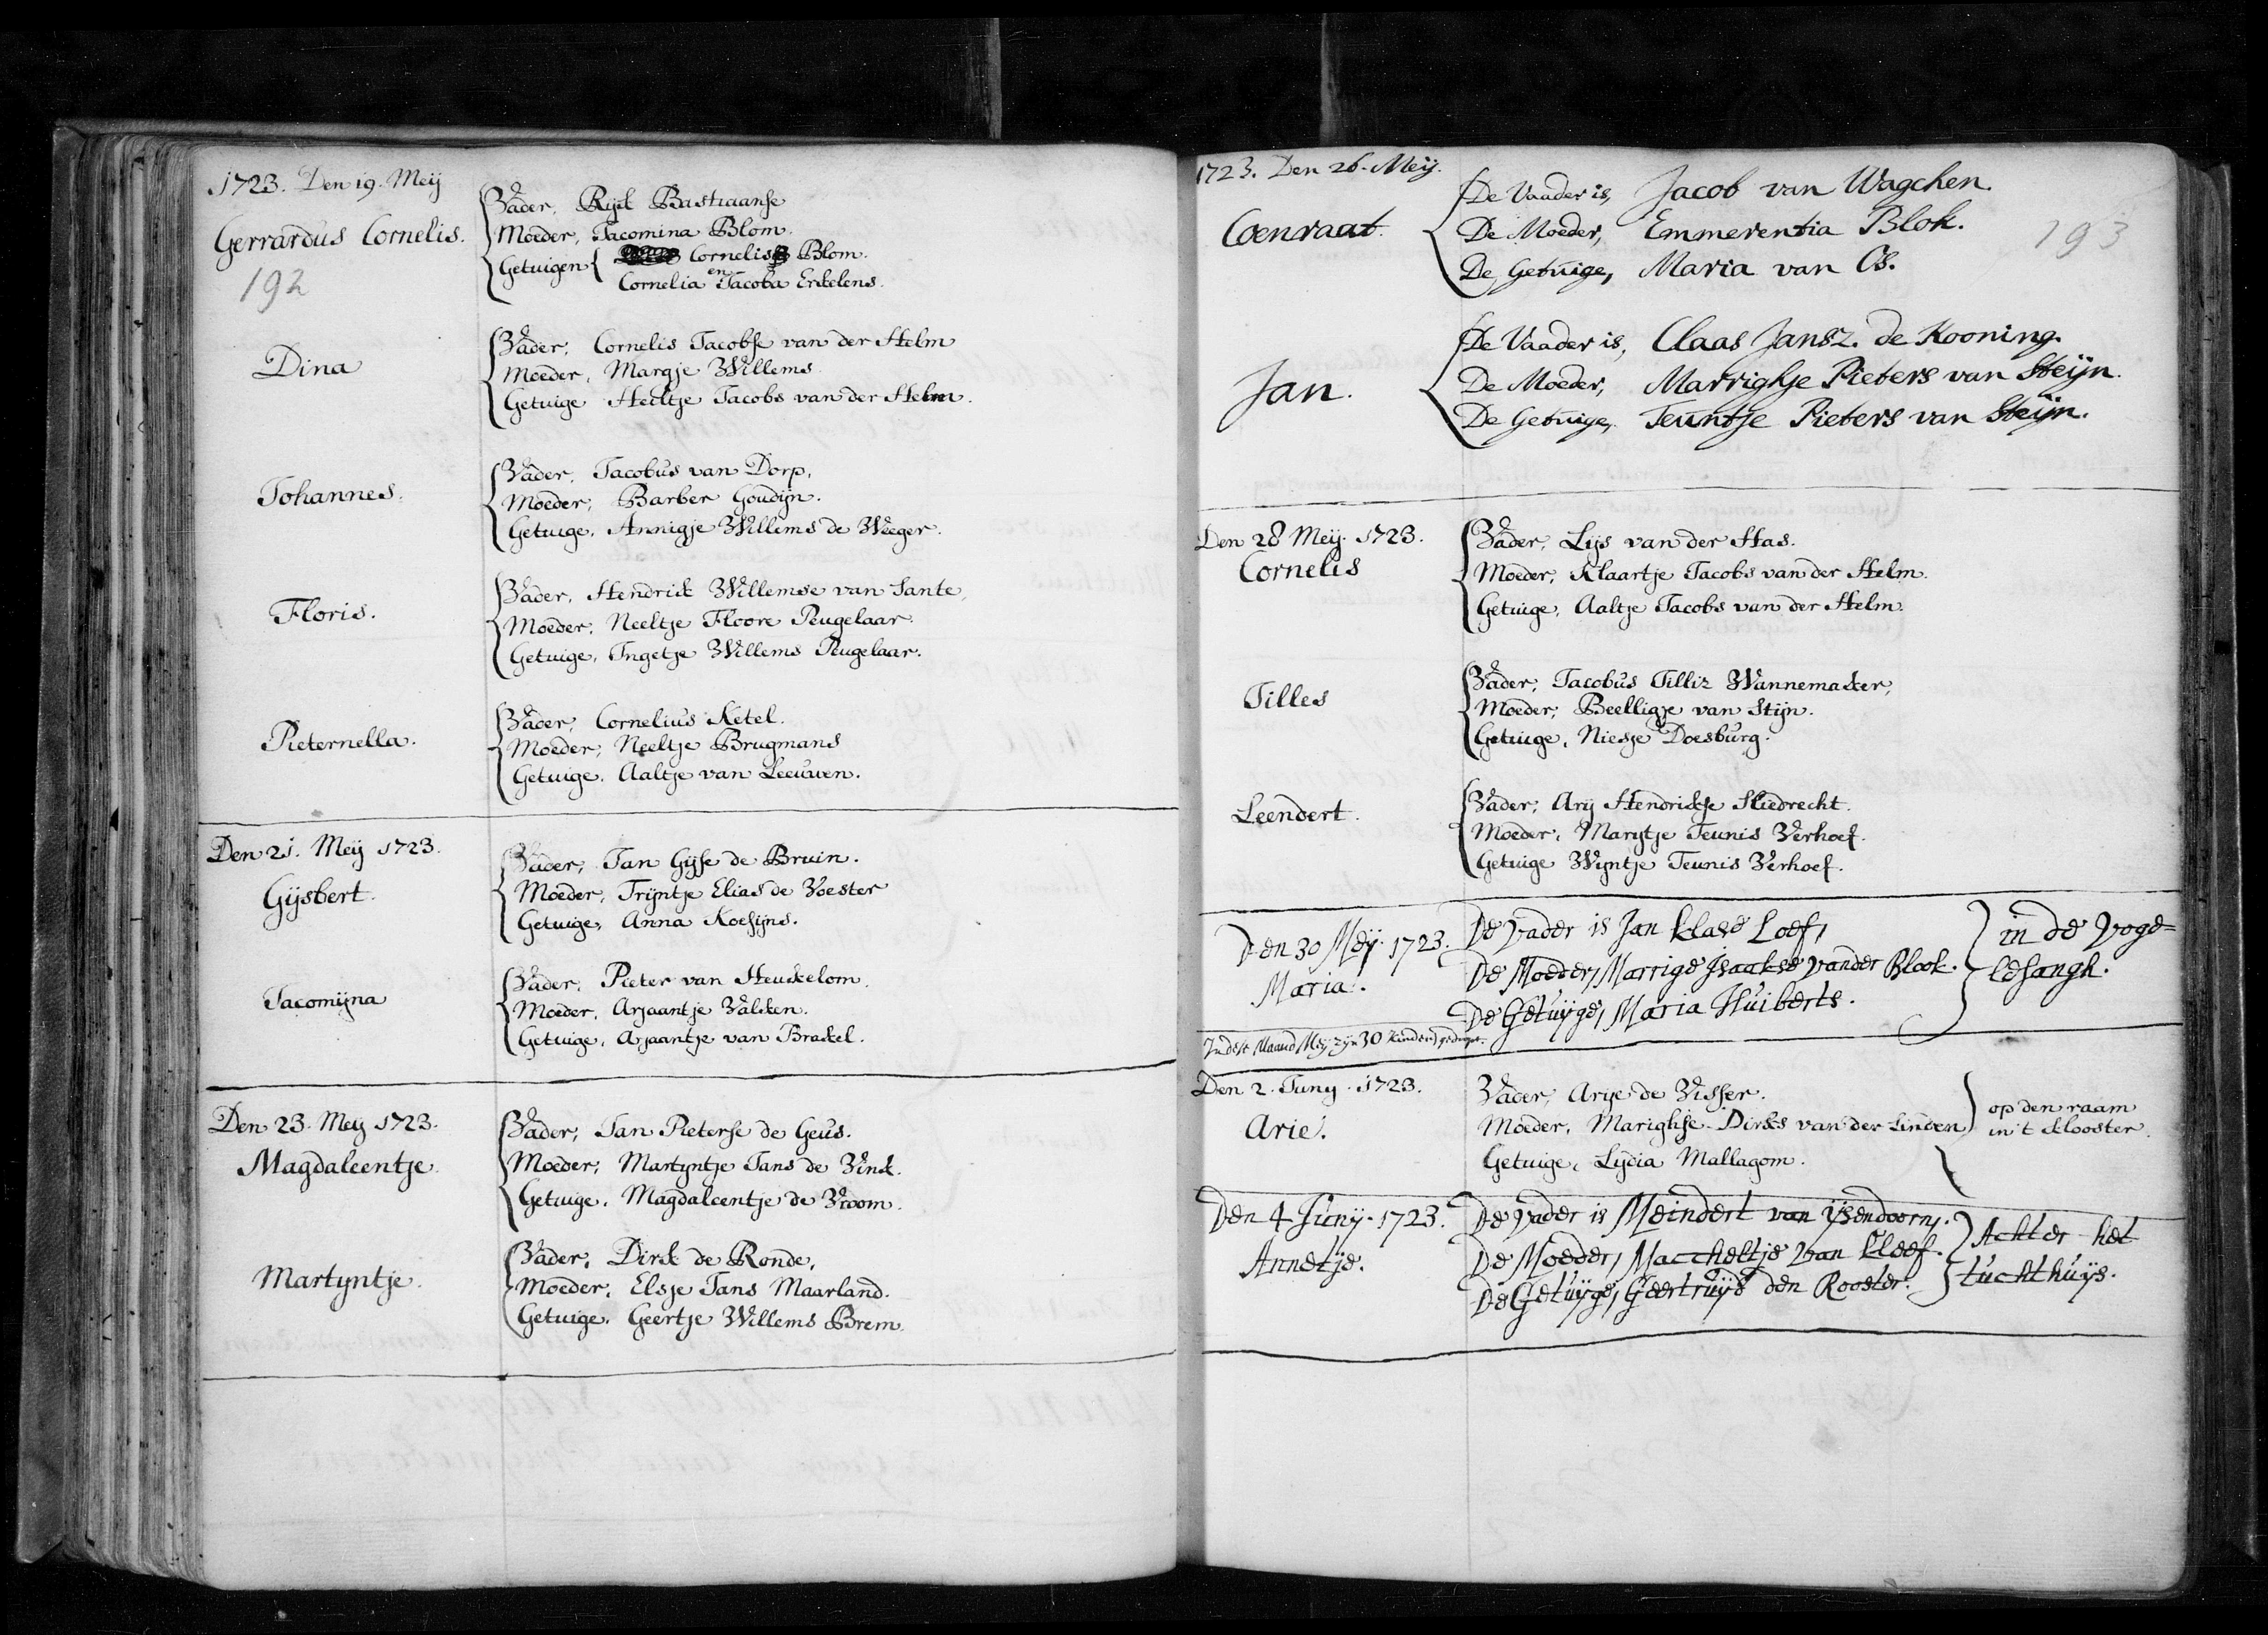 1723. Den 19. Meij
Gerrardus Cornelis.
192
Vader, Rijk Bastiaanse
Moeder, Jacomina Blom.
Getuigen Cornelis Blom.
Cornelia en Jacoba Erkelens.
Dina
Vader, Cornelis Jacobse van der Helm
Moeder, Margje Willems
Getuige Heiltje Jacobs van der Helm.
Johannes.
Vader, Jacobus van Dorp,
Moeder, Barber Goudijn.
Getuige, Annigje Willems de Weeger.
Floris.
Vader, Hendrik Willemse van Sante,
Moeder, Neeltje Floore Peugelaar.
Getuige, Ingetje Willems Peugelaar.
Pieternella.
Vader, Cornelius Ketel.
Moeder, Neeltje Brugmans
Getuige, Aaltje van Leeuwen.
Den 21. Meij 1723.
Gijsbert.
Vader, Jan Gijse de Bruin.
Moeder, Trijntje Elias de Voester
Getuige, Anna Koesijns.
Jacomijna
Vader, Pieter van Heukelom.
Moeder, Arjaantje Valken.
Getuige, Arjaantje van Brakel.
Den 23. Meij 1723.
Magdaleentje.
Vader, Jan Pieterse de Geus.
Moeder, Martijntje Jans de Vink.
Getuige, Magdaleentje de Vroom.
Martijntje.
Vader, Dirk de Ronde,
Moeder, Elsje Jans Maarland.
Getuige, Geertje Willems Brem.
1723. Den 26. Meij.
Coenraat.
De Vaader is, Jacob van Wagchen.
De Moeder, Emmerentia Blok.
De Getuige, Maria van Os.
193
Jan.
De Vaader is, Claas Jansz. de Kooning.
De Moeder, Marrighje Pieters van Steijn.
De Getuige, Teuntje Pieters van Steijn.
Den 28 Meij 1723.
Cornelis
Vader, Lijs van der Has.
Moeder, Klaartje Jacobs van der Helm.
Getuige, Aaltje Jacobs van der Helm.
Jilles
Vader, Jacobus Jilliz Wannemaker,
Moeder, Beelligje van Stijn.
Getuige, Niesje Doesburg.
Leendert.
Vader, Arij Hendrikse Sliedrecht.
Moeder, Marijtje Teunis Verhoef.
Getuige Wijntje Teunis Verhoef.
Den 30 Meij. 1723.
Maria.
De Vader is Jan Klase Loef,
De Moeder, Marrige Isaakse vander Blook.
De Getuijge, Maria Huiberts.
in de Voge=
lesangh.
In dese Maand Meij zijn 30 kinderen gedoopt.
Den 2. Junij. 1723.
Arie.
Vader, Arije de Visser.
Moeder, Marighje Dirks van der Linden
Getuige, Lydia Mallagom.
op den raam
in 't klooster.
Den 4 Junij. 1723.
Annetje.
De Vader is Meindert van IJsendoorn,
De Moeder, Maccheltje van Kleef.
De Getuijge, Geertruijd den Rooster.
Achter het
tuchthuijs.